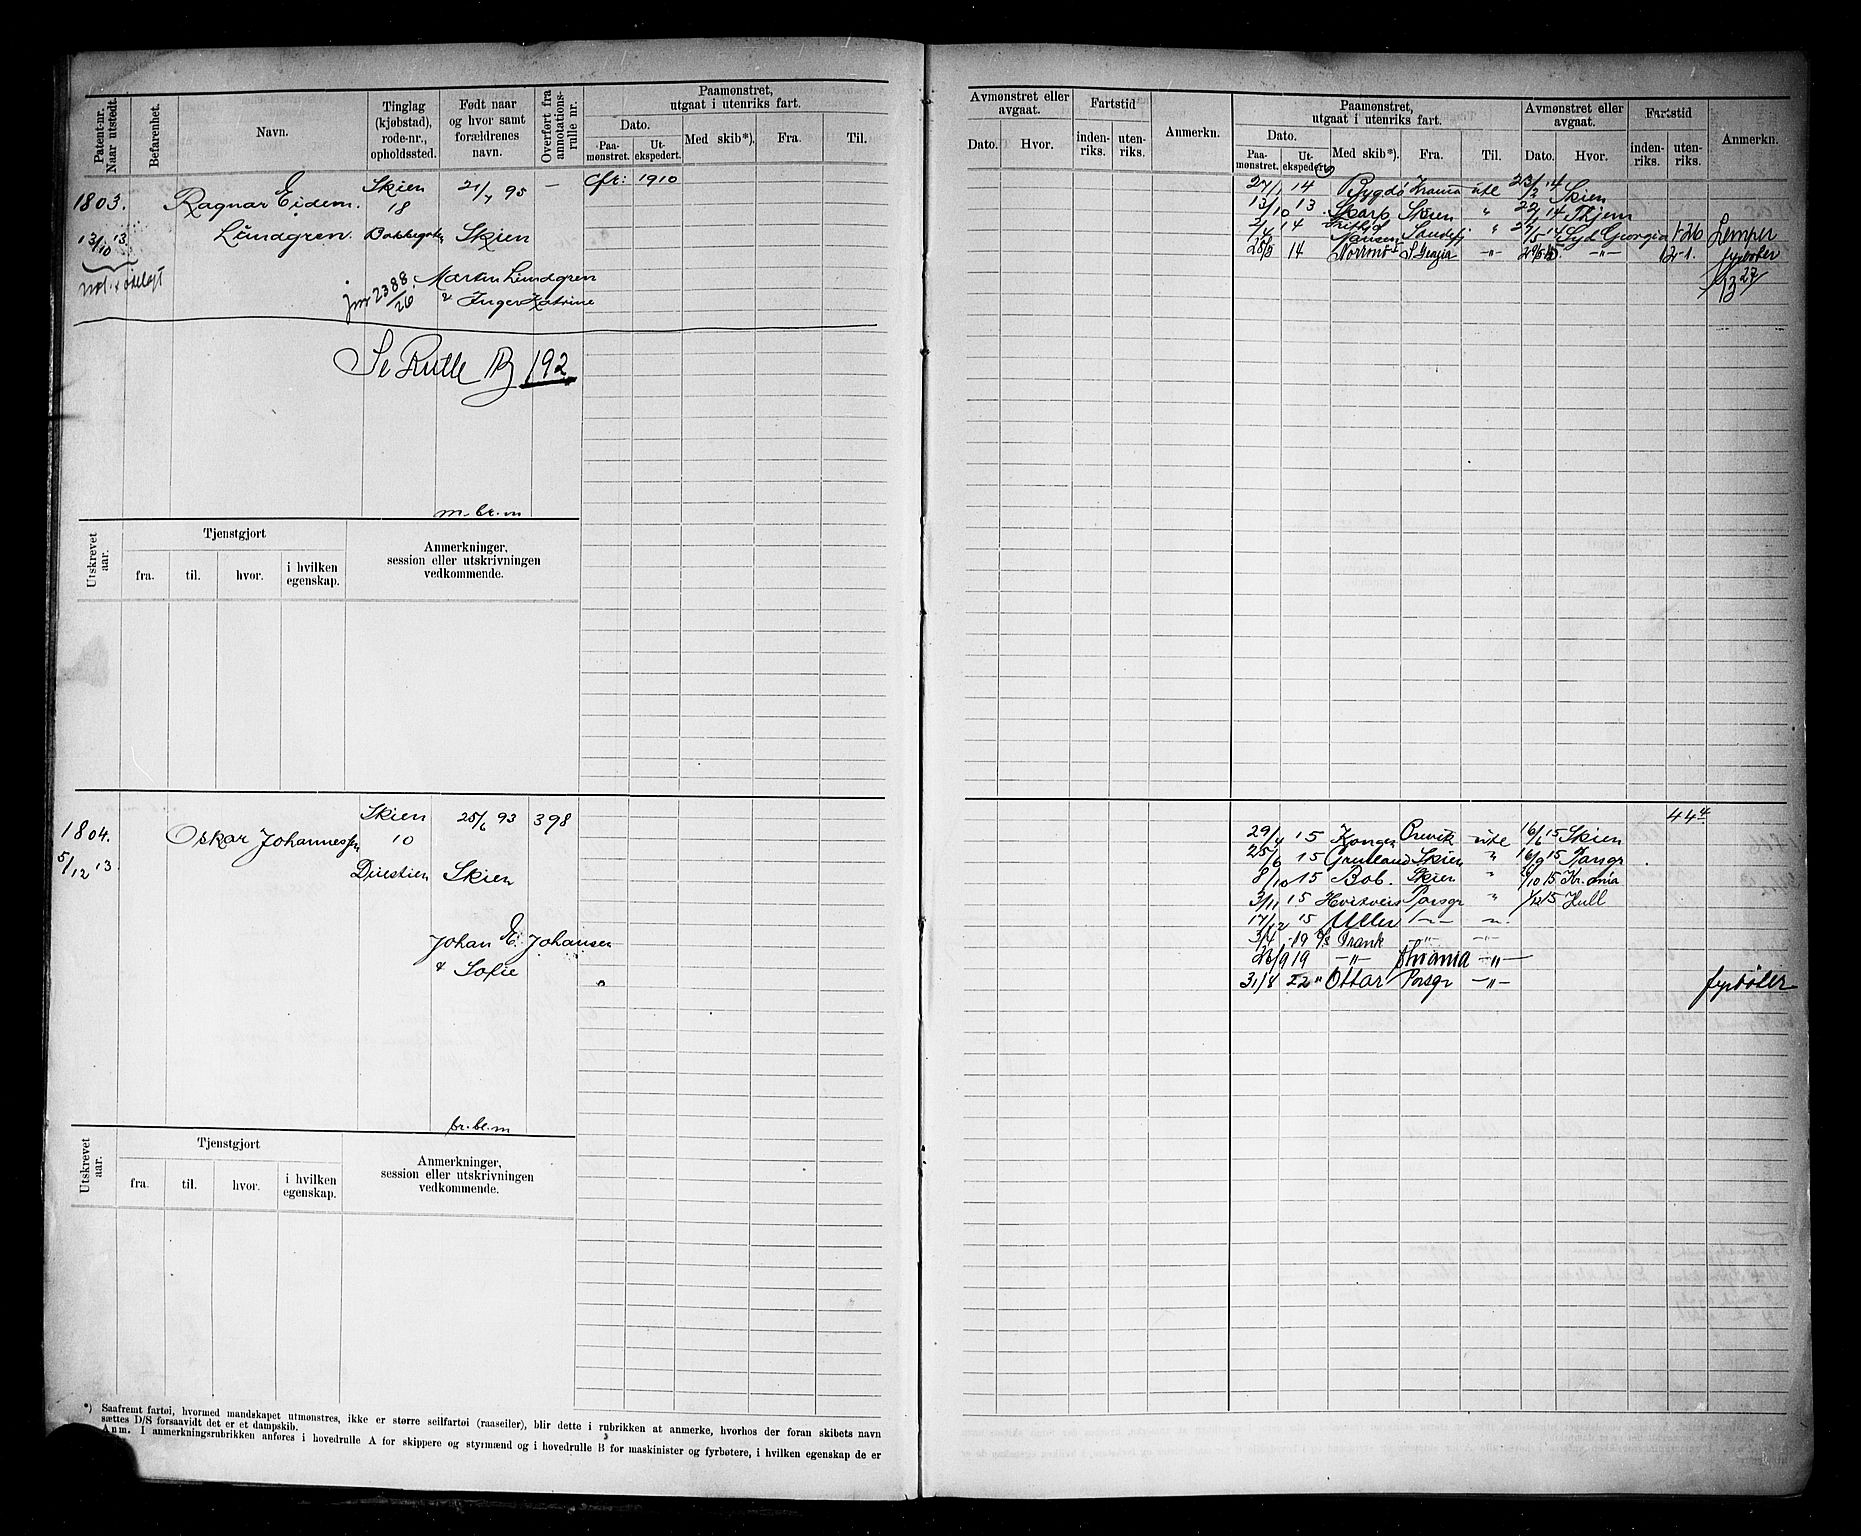 Patent-nr. Naar utstedt.
Befarenhet.
Navn.
Tinglag (kjøbstad), rode-nr., opholdssted.
Født naar og hvor samt forældrenes navn.
Overført fra annotations-rulle nr.
Paamønstret, utgaat i utenriks fart.
Dato.
Paa-mønstret.
Ut-ekspedert.
Med skib*).
Fra.
Til.
1803.
Ragnar Eidem
Skien
21/7 95
—
Cfr: 1910
18
13/10 13
Lundgren.
Bakkegaten
Skien
Martin Lundgren
jnr 2388/26
& Inger Katrine
Se Rulle B 192
m. br. m
Utskrevet aar.
Tjenstgjort
fra.
til.
hvor.
i hvilken egenskap.
Anmerkninger, session eller utskrivningen vedkommende.
1804.
Oskar Johannessen
Skien
25/6 93
398
10
5/12 13
Skien
Johan E. Johansen
& Sofie
br. bl. m
Utskrevet aar.
Tjenstgjort
fra.
til.
hvor.
i hvilken egenskap.
Anmerkninger, session eller utskrivningen vedkommende.
*) Saafremt fartøi, hvormed mandskapet utmønstres, ikke er større seilfartøi (raaseiler), blir dette i rubrikken at anmerke, hvorhos der foran skibets navn
sættes D/S forsaavidt det er et dampskib.
Anm. I anmerkningsrubrikken anføres i hovedrulle A for skippere og styrmænd og i hovedrulle B for maskinister og fyrbøtere, i hvilken egenskap de er
Avmønstret eller avgaat.
Dato.
Hvor.
Fartstid
inden-riks.
uten-riks.
Anmerkn.
Paamønstret, utgaat i utenriks fart.
Dato.
Paa-mønstret.
Ut-ekspedert.
Med skib*).
Fra.
Til.
Avmønstret eller avgaat.
Dato.
Hvor.
Fartstid
inden-riks.
uten-riks.
Anmerkn.
27/1 14 Bygdø Krania ute 23/2 14 Skien
13/10 13 Skarp Skien " 22/1 14
2/4 14 Nansen Sandefj " Syd Georgia 1-26 Lemper
25/5 14 S Georgia -"- -"- fyrbøter
444
29/4 15 Konger Brevik ute 16/6 15 Skien
25/6 15 Grenland Skien " 16/9 15 Porsgr
8/10 15 Bob. Skien " 15 Kr.ania
3/11 15 Hvitveis Porsgr " 1/12 15 Hull
17/12 15 Uller -"- -"-
3/4 19 D/S Frank -"- -"-
26/9 19 -"- Khrania -"-
31/8 22 " Ottar Porsgr -"- fyrbøter